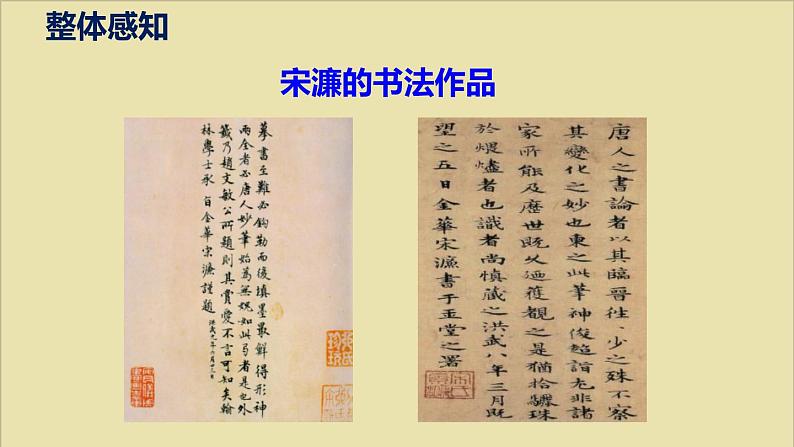 整体感知
宋濂的书法作品
摹書至難必鈎勒而後填墨最鮮得形神
兩全者必唐人妙筆始爲無媿如此弓者是也外
籤乃趙文敏公所題則其賞愛不言可知矣翰
林學士承旨金華宋濂謹題 洪武九年六月廿三日
唐人之書論者以其臨晉往々少之殊不察
其變化之妙也東之此筆神俊超詣尤非諸
家所能及歷世既久迺獲觀之是猶拾驪珠
於煨燼者也識者尚慎藏之洪武八年三月既
望之五日金華宋濂書于玉堂之署